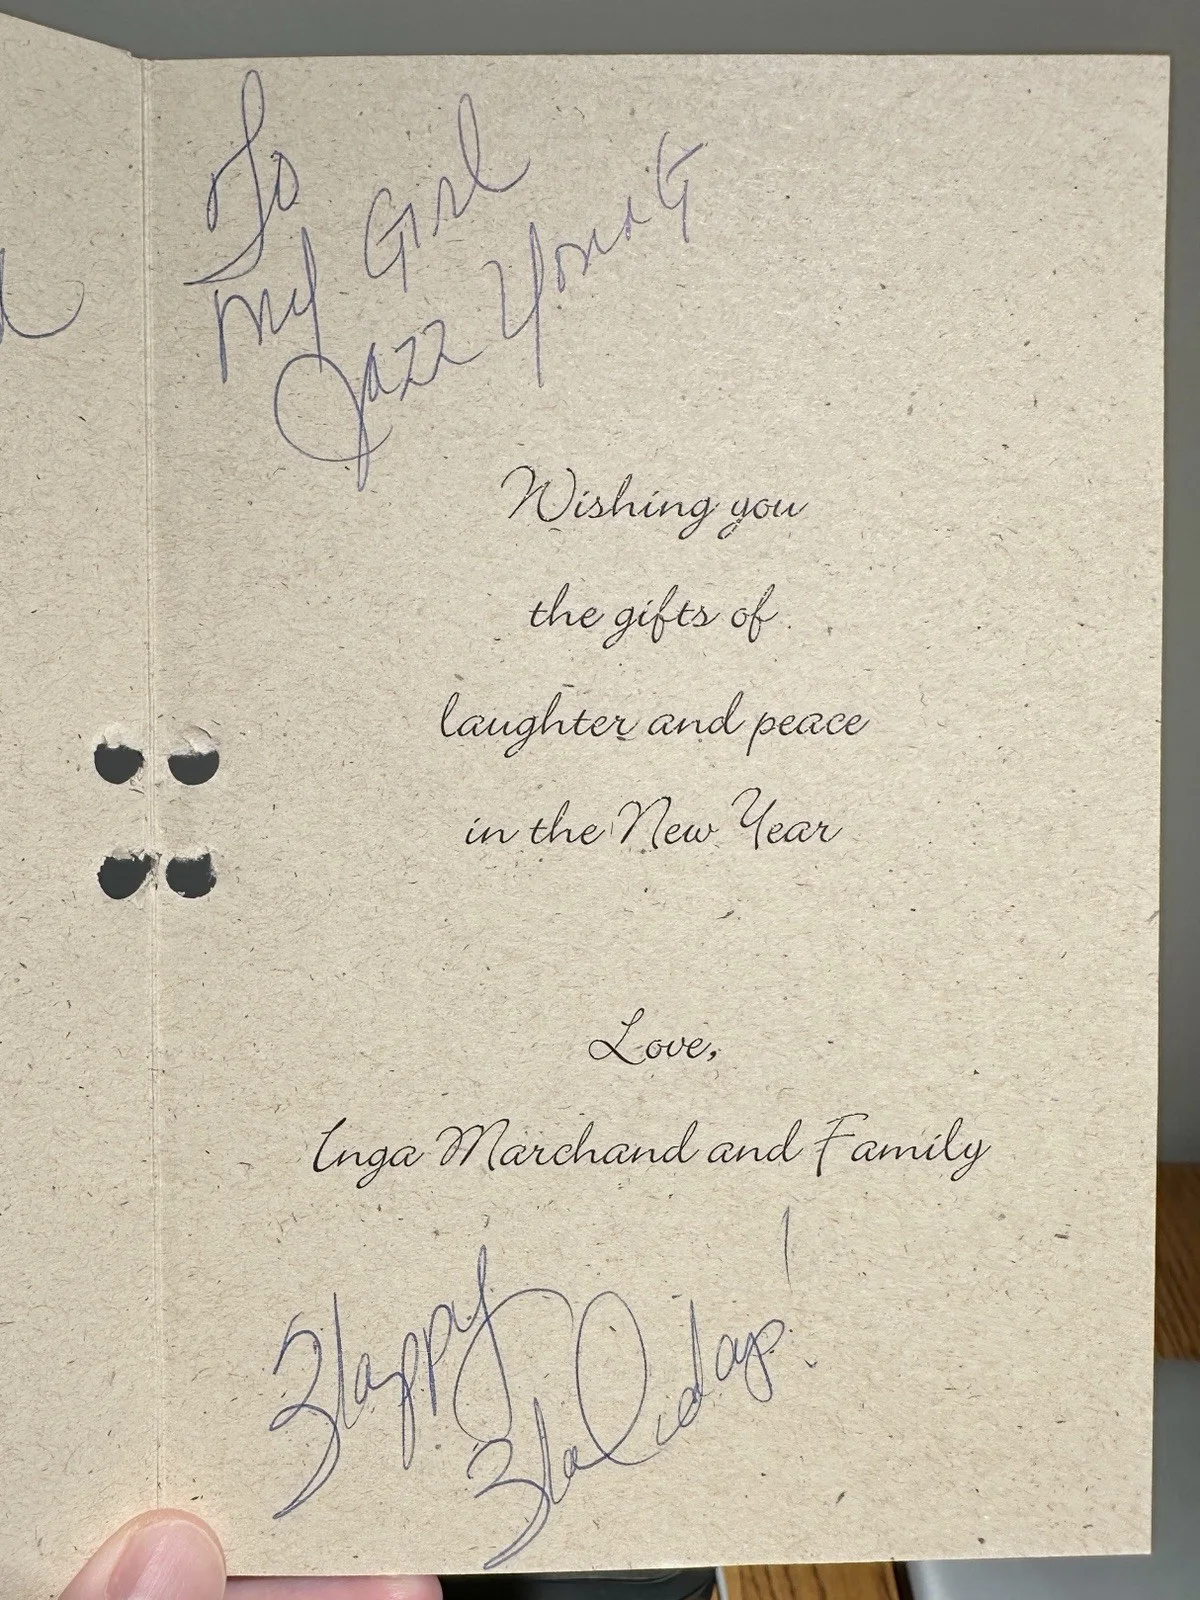 To
My Girl
Jazz Young
Wishing you
the gifts of
laughter and peace
in the New Year
Love,
Inga Marchand and Family
Happy
Holidays!